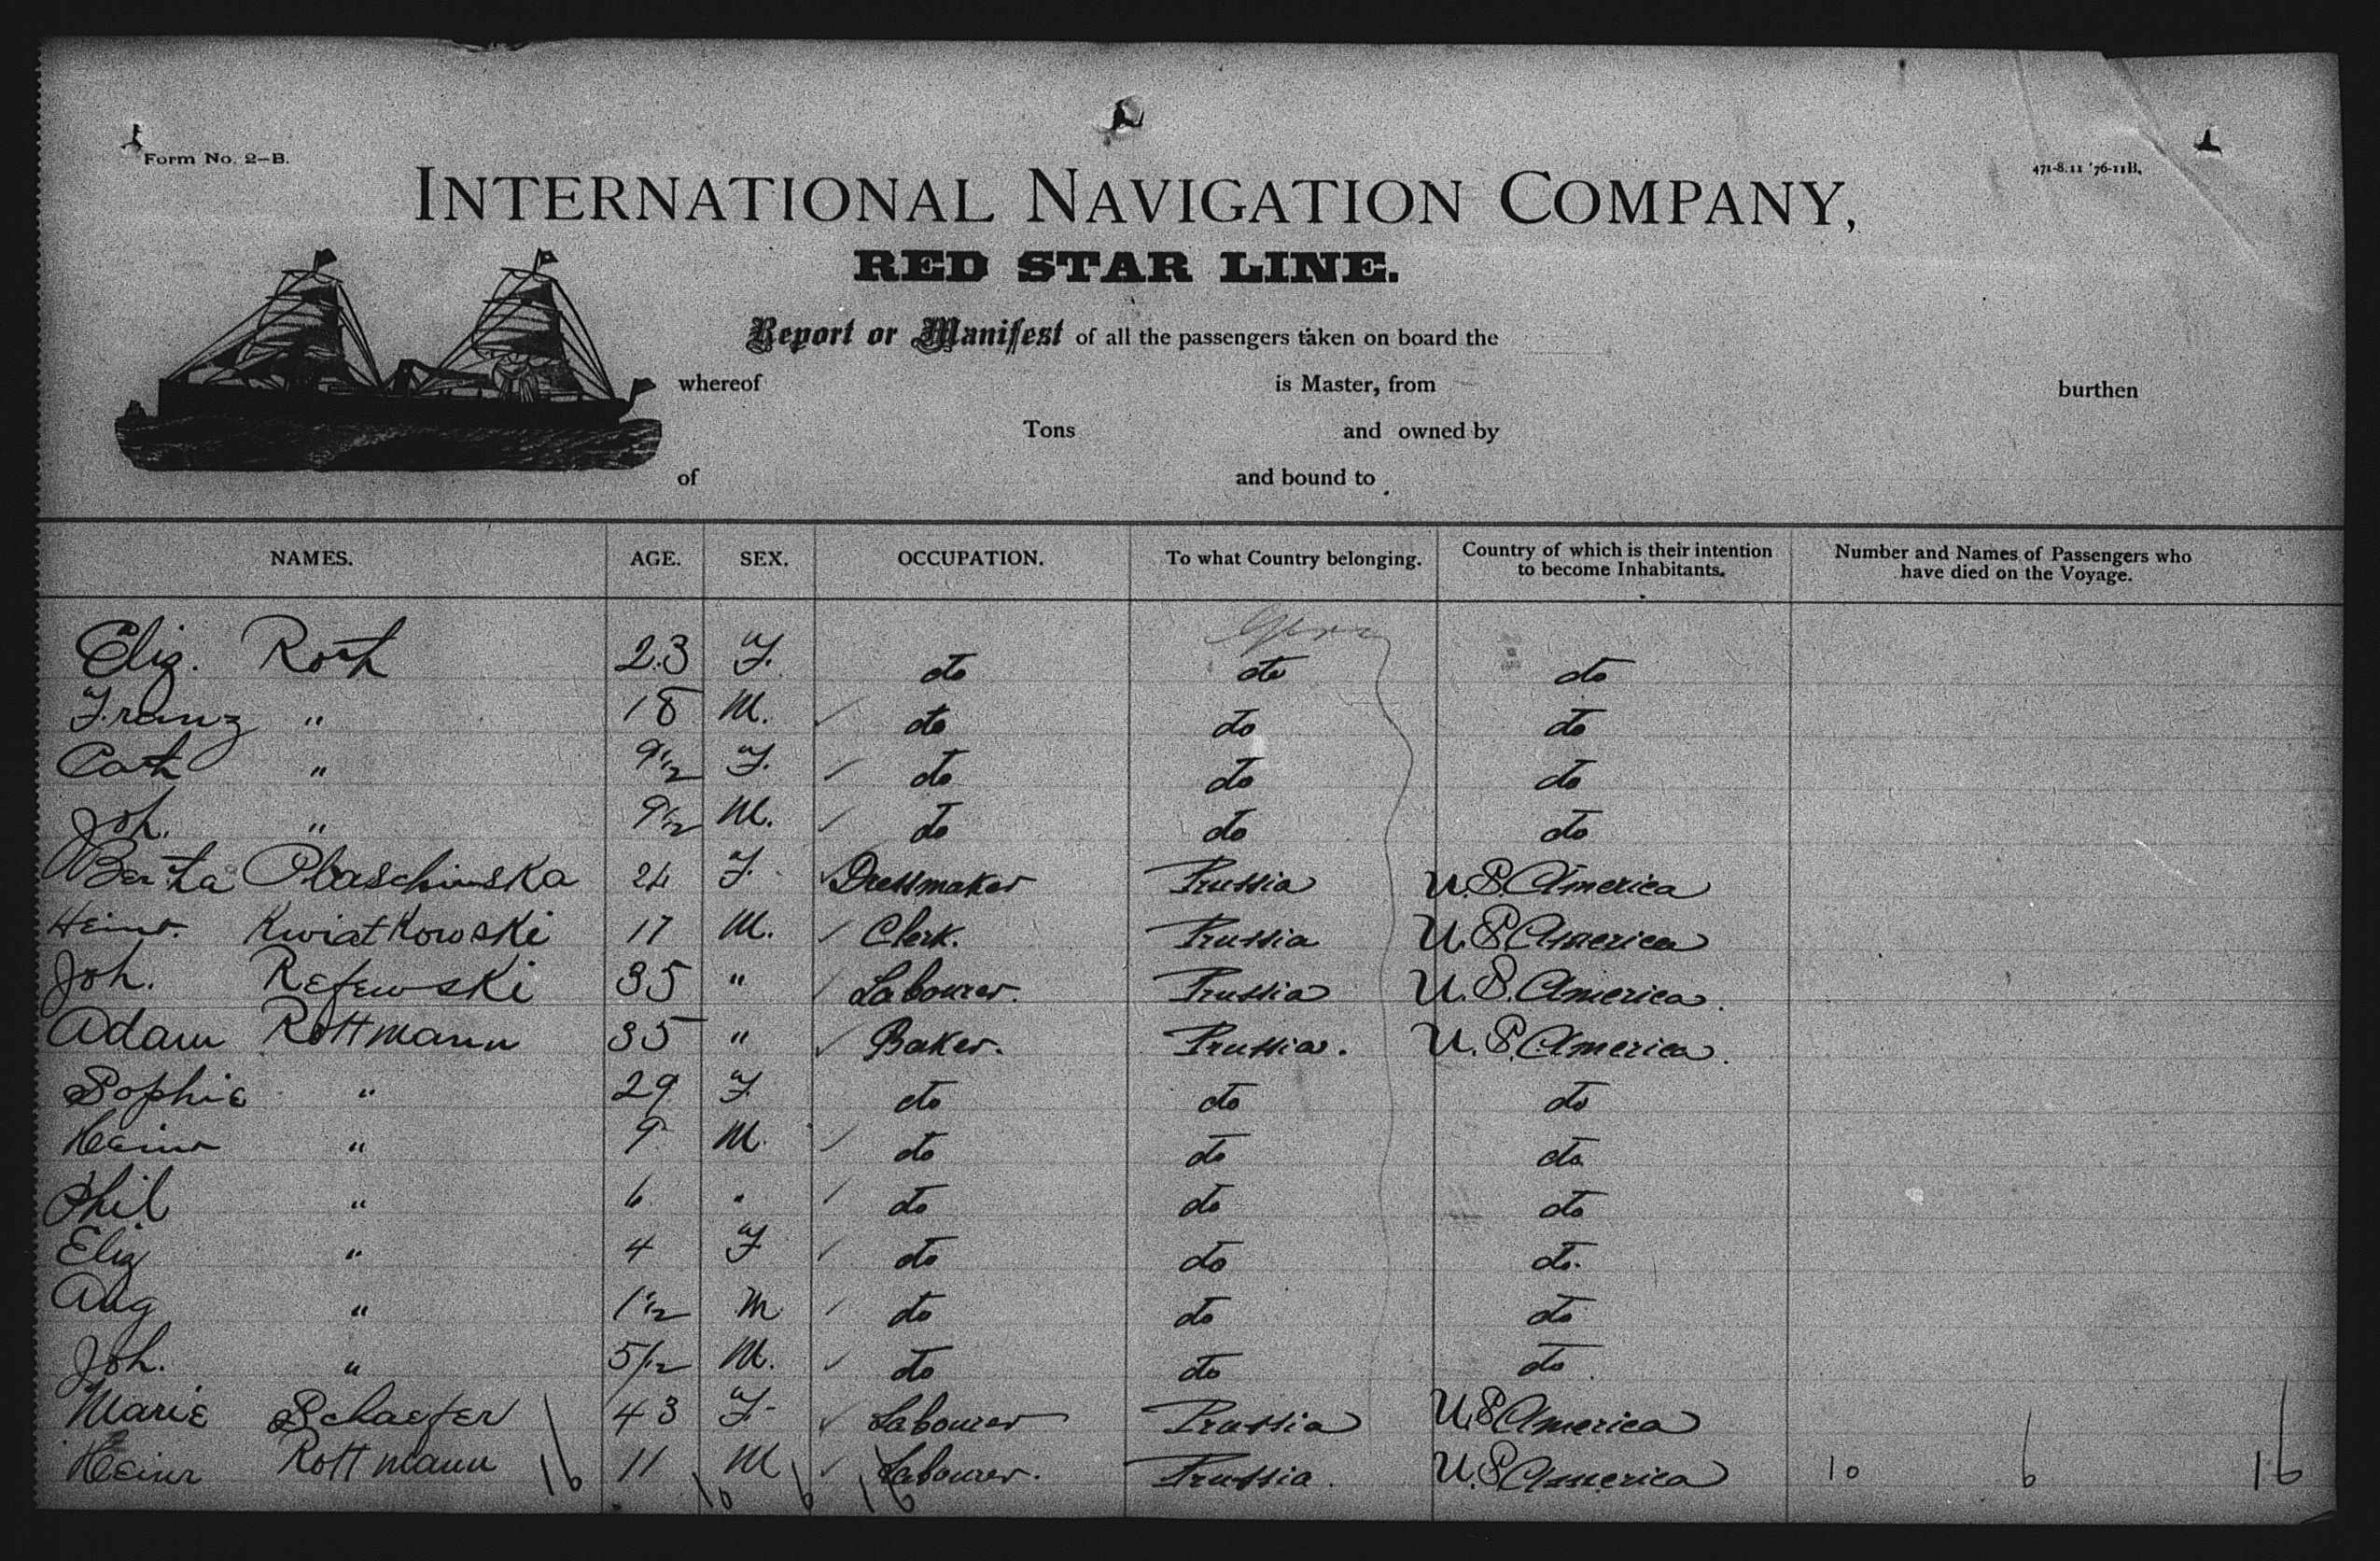 Form No. 2-B.
471-8.11 '76-11B.
INTERNATIONAL NAVIGATION COMPANY,
RED STAR LINE.
Report or Manifest of all the passengers taken on board the
whereof is Master, from burthen
Tons and owned by
of and bound to
NAMES. AGE. SEX. OCCUPATION. To what Country belonging. Country of which is their intention to become Inhabitants. Number and Names of Passengers who have died on the Voyage.
Eliz. Roth 23 F. do do do
Franz " 18 M. do do do
Cath " 9 1/2 F. do do do
Joh. " 9 1/2 M. do do do
Bertha 24 F. Dressmaker Prussia U.S. America
Heinr. Kwiatkowski 17 M. Clerk. Prussia U.S. America
Joh. Refewski 35 " Labourer. Prussia U.S. America.
Adam Rottmann 35 " Baker. Prussia. U.S. America.
Sophie " 29 F. do do do
Heinr " 9 M. do do do
Phil " 6 " do do do
Eliz " 4 F do do do.
Aug " 1 1/2 M do do do
Joh. " 5/12 M. do do do
Marie Schaefer 43 F. Labourer Prussia U.S. America
Heinr Rottmann 11 M Labourer. Prussia. U.S. America 10 6 16
16 10 6 16